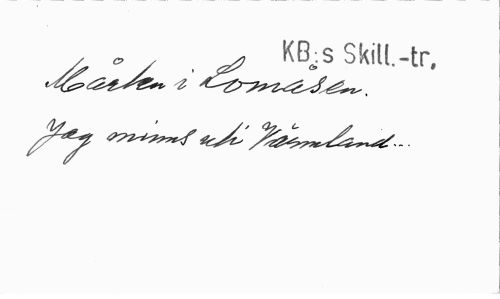 KB:s Skill.-tr.
Mårten i Lomåsen.
Jag minns uti Värmland...